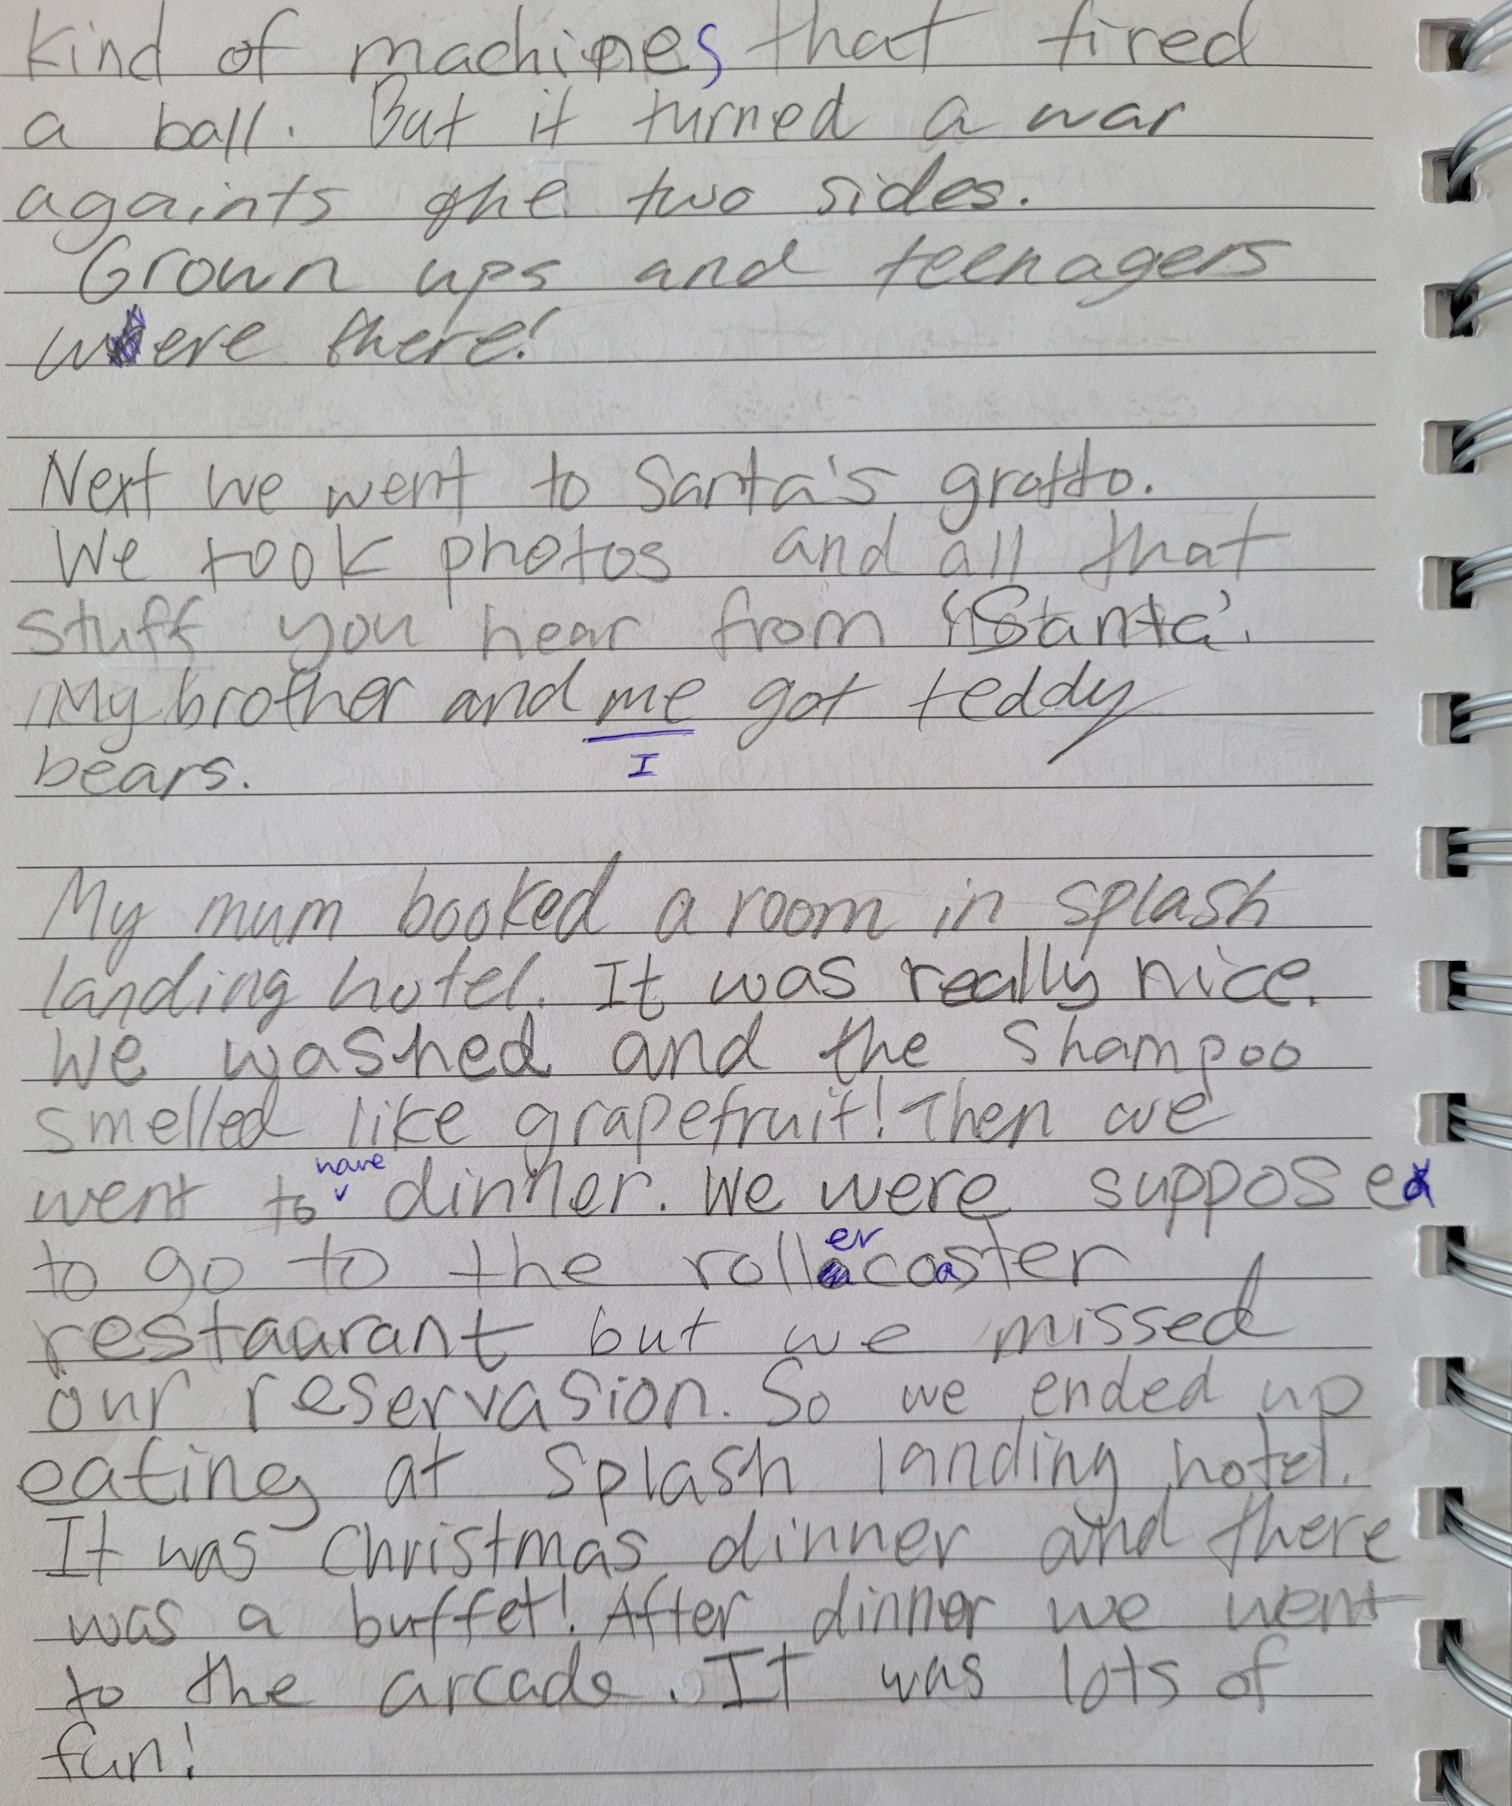 kind of machines that fired
a ball. But it turned a war
againts the two sides.
Grown ups and teenagers
were there!
Next we went to Santa's grotto.
We took photos and all that
stuff you hear from 'Santa'.
My brother and me got teddy
I
bears.
My mum booked a room in splash
landing hotel. It was really nice.
We washed and the shampoo
smelled like grapefruit! Then we
have
went to dinner. We were supposed
er
to go to the rollcoaster
restaurant but we missed
our reservasion. So we ended up
eating at Splash landing hotel.
It was Christmas dinner and there
was a buffet! After dinner we went
to the arcade. It was lots of
fun!